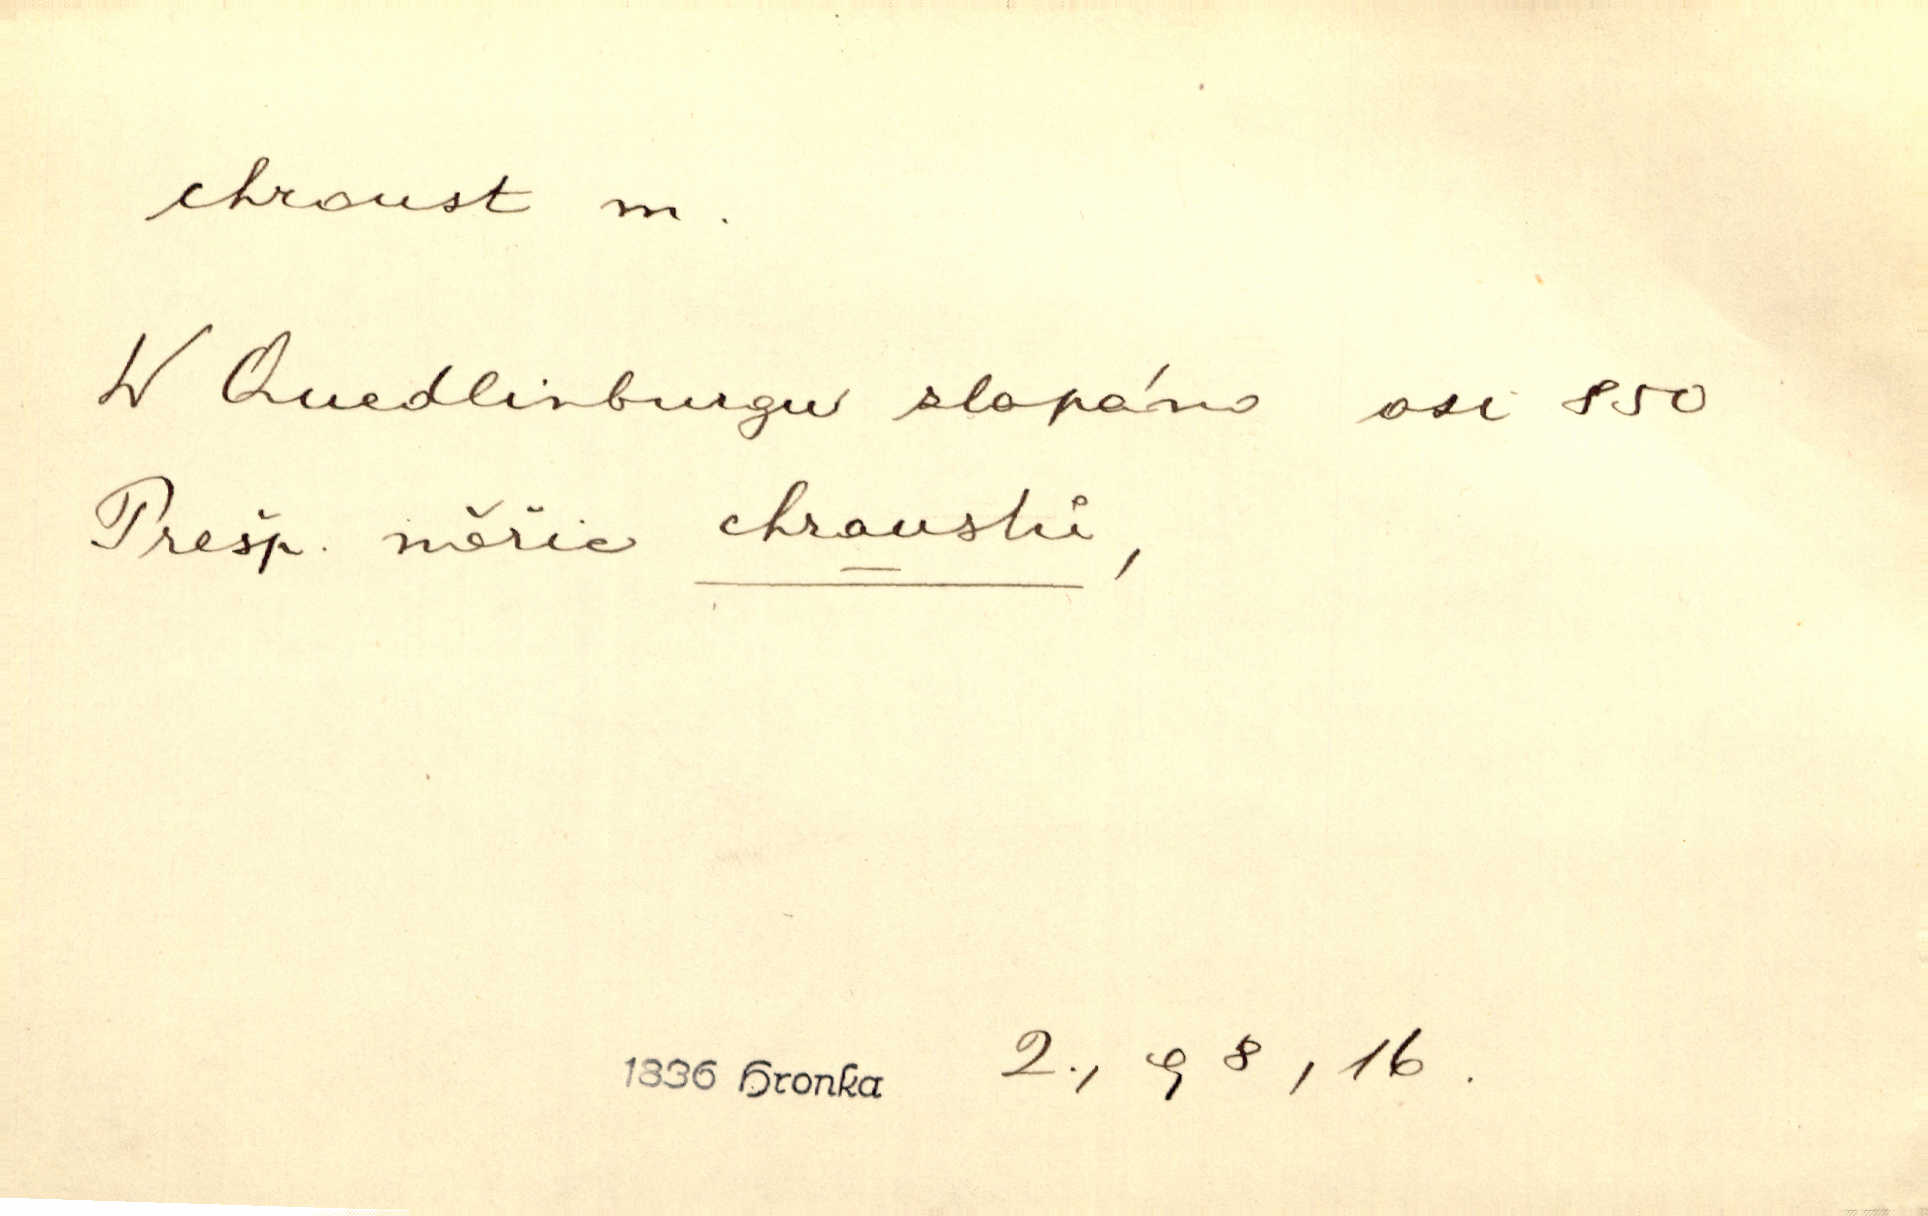 chroust m.
W Quedlinburgu zlapáno asi 850
Prešp. měřic chroustů,
1836 Hronka 2., 98, 16.